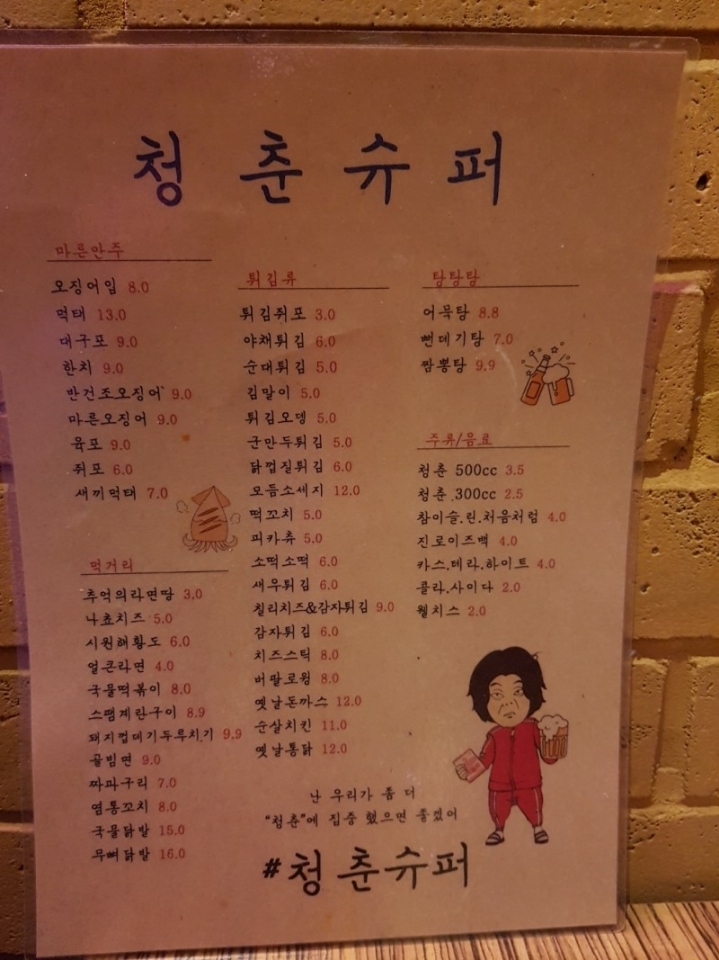 청춘슈퍼
마른안주
오징어입 8.0
먹태 13.0
대구포 9.0
한치 9.0
반건조오징어 9.0
마른오징어 9.0
육포 9.0
쥐포 6.0
새끼먹태 7.0
먹거리
추억의라면땅 3.0
나쵸치즈 5.0
시원해황도 6.0
얼큰라면 4.0
국물떡볶이 8.0
스팸계란구이 8.9
돼지껍데기두루치기 9.9
골빔면 9.0
짜파구리 7.0
염통꼬치 8.0
국물닭발 15.0
무뼈닭발 16.0
튀김류
튀김쥐포 3.0
야채튀김 6.0
순대튀김 5.0
김말이 5.0
튀김오뎅 5.0
군만두튀김 5.0
닭껍질튀김 6.0
모듬소세지 12.0
떡꼬치 5.0
피카츄 5.0
소떡소떡 6.0
새우튀김 6.0
칠리치즈&감자튀김 9.0
감자튀김 6.0
치즈스틱 8.0
버팔로윙 8.0
옛날돈까스 12.0
순살치킨 11.0
옛날통닭 12.0
탕탕탕
어묵탕 8.8
뻔데기탕 7.0
짬뽕탕 9.9
주류/음료
청춘 500cc 3.5
청춘 300cc 2.5
참이슬.린.처음처럼 4.0
진로이즈백 4.0
카스.테라.하이트 4.0
콜라.사이다 2.0
웰치스 2.0
난 우리가 좀 더
"청춘"에 집중 했으면 좋겠어
#청춘슈퍼